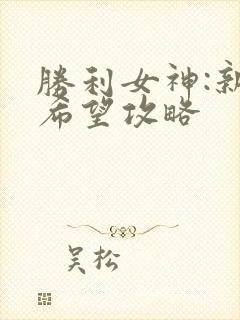 勝利女神:新
希望攻略
吴松